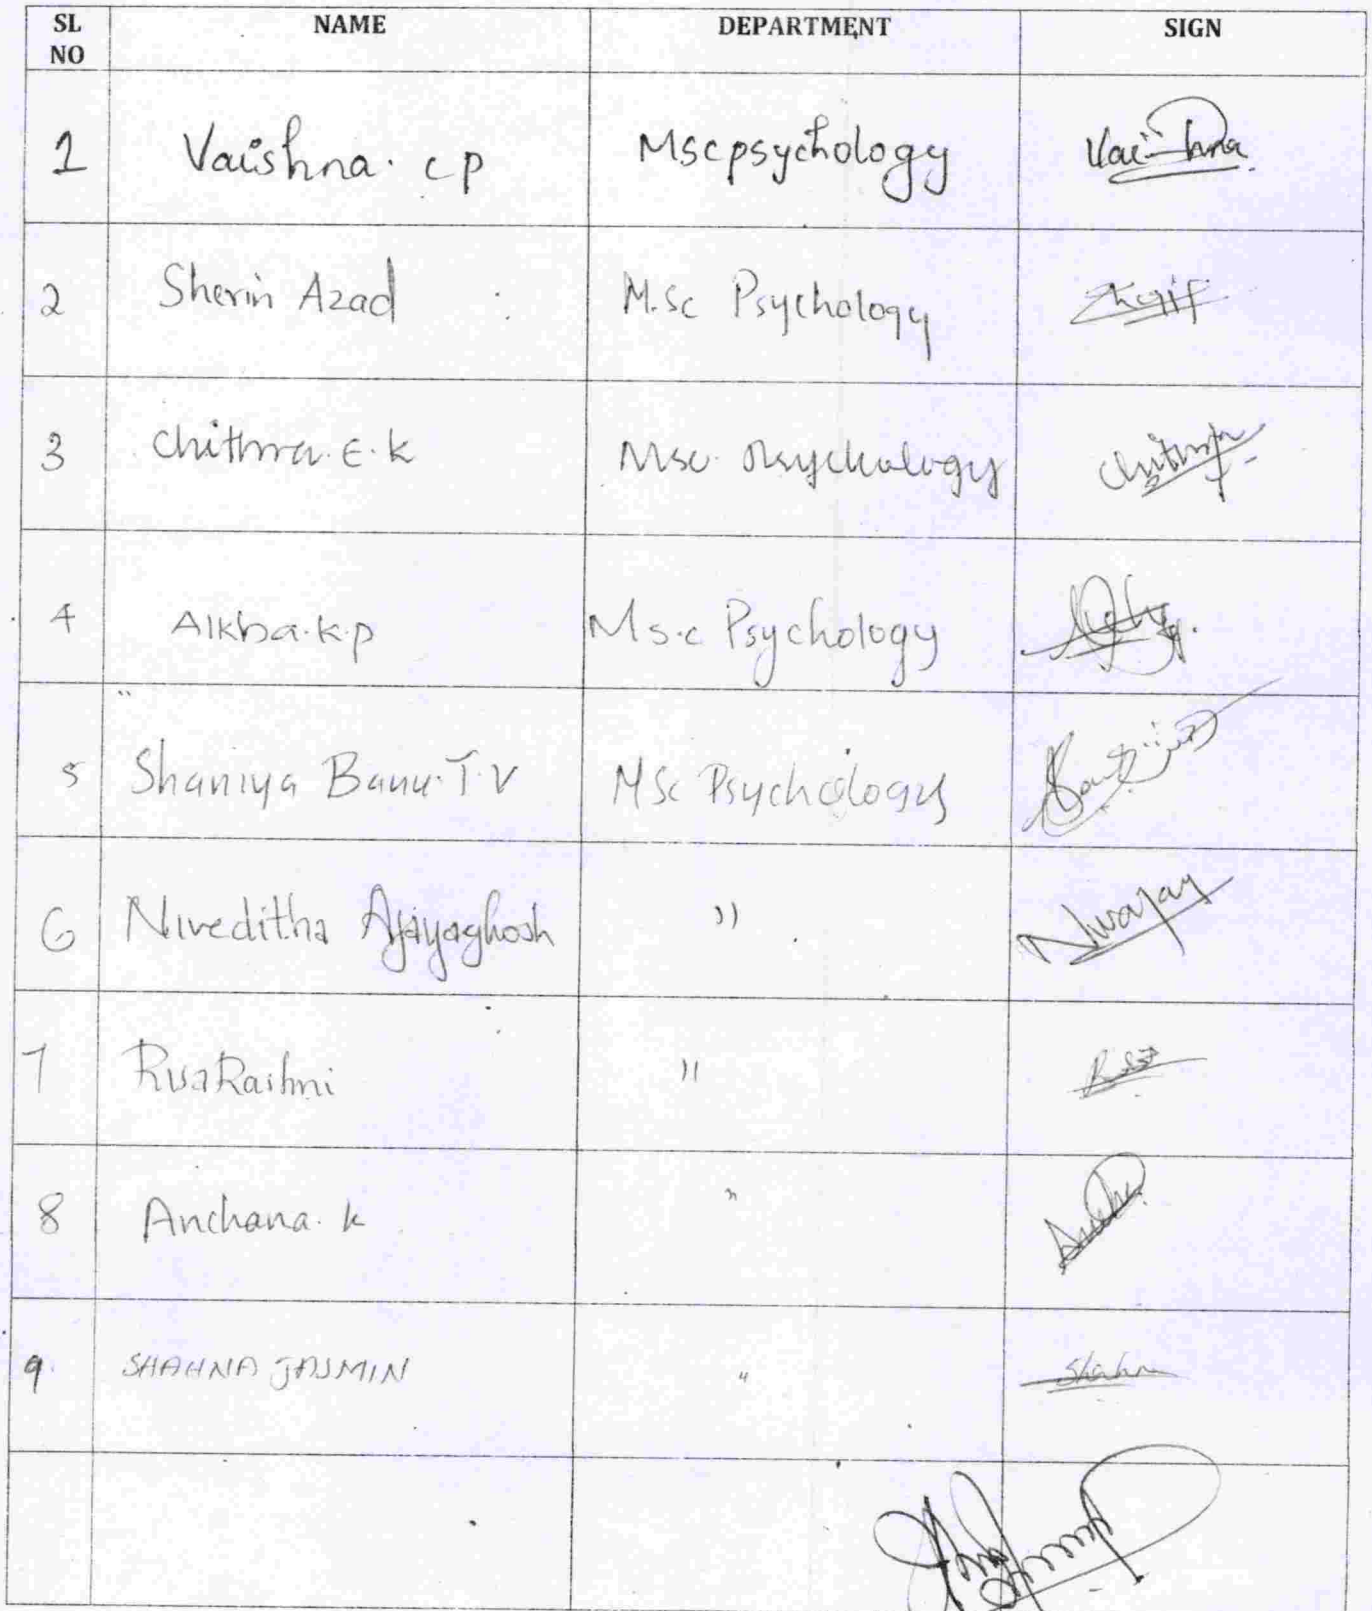 SL NO NAME DEPARTMENT SIGN
1 Vaishna. c p Msc psychology Vaishna
2 Sherin Azad M.Sc Psychology
3 Chithra. E. K Msc Psychology Chithra
4 Alkha. k. p M s.c Psychology
5 Shaniya Banu. T. V MSc Psychology
6 Niveditha Ajayaghosh " Nivajay
7 Risa Rashmi "
8 Anchana. k "
9. SHAHNA JASMIN " Shahn